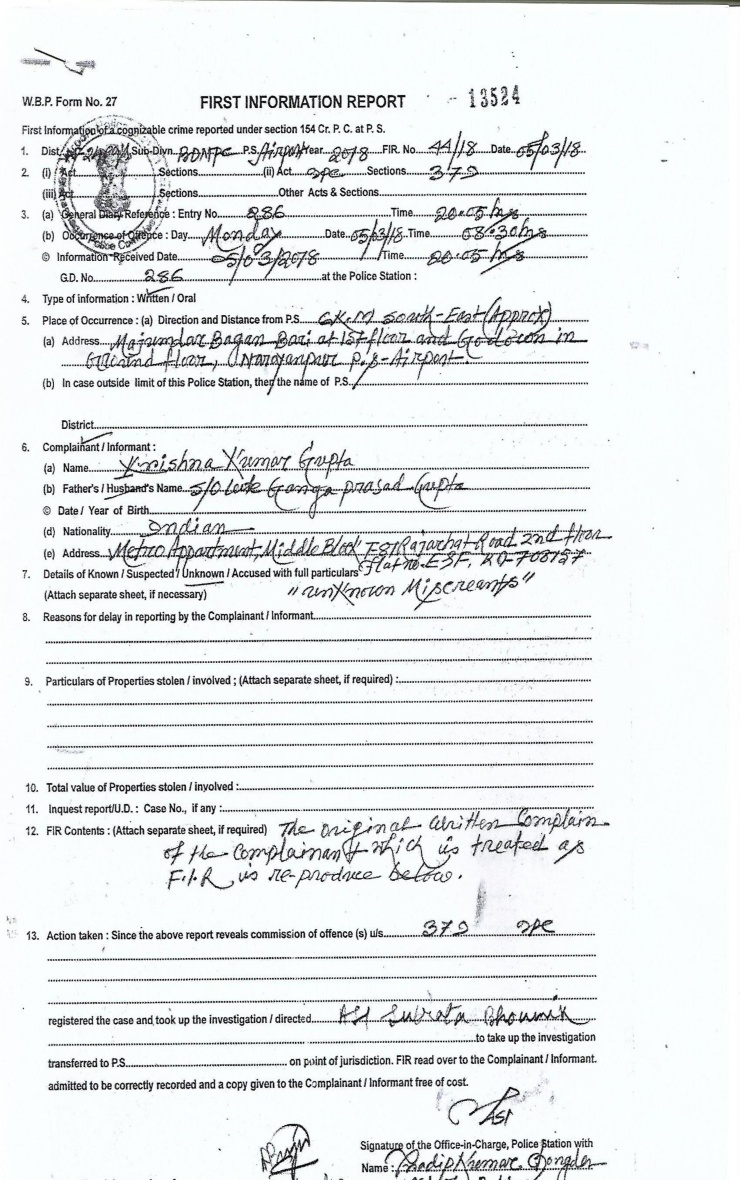 - 13524
W.B.P. Form No. 27 FIRST INFORMATION REPORT
First Information of a cognizable crime reported under section 154 Cr. P. C. at P. S.
1. Dist. Sub-Divn. BDNPC P.S. Airport Year 2018 FIR. No. 44/18 Date 05/03/18
2. (i) Act Sections (ii) Act IPC Sections 379
(iii) Act Sections Other Acts & Sections
3. (a) General Diary Reference : Entry No. 286 Time 20:05 hrs
(b) Occurrence of Offence : Day Monday Date 05/03/18 Time 08:30 hrs
© Information Received Date 05/03/2018 Time 20:05 hrs
G.D. No. 286 at the Police Station :
4. Type of information : Written / Oral
5. Place of Occurrence : (a) Direction and Distance from P.S. 6 K.M South-East (Approx)
(a) Address Majumdar Bagan Bari at 1st floor and Godown in
Ground floor, Narayanpur P.S- Airport.
(b) In case outside limit of this Police Station, then the name of P.S.
District
6. Complainant / Informant :
(a) Name Krishna Kumar Gupta
(b) Father's / Husband's Name S/O Late Ganga Prasad Gupta
© Date / Year of Birth
(d) Nationality Indian
(e) Address Metro Appartment, Middle Block F81 Rajarhat Road 2nd floor
Flat no. E3F,
7. Details of Known / Suspected / Unknown / Accused with full particulars
(Attach separate sheet, if necessary) "unknown Miscreants"
8. Reasons for delay in reporting by the Complainant / Informant
9. Particulars of Properties stolen / involved ; (Attach separate sheet, if required) :
10. Total value of Properties stolen / involved :
11. Inquest report/U.D. : Case No., if any :
12. FIR Contents : (Attach separate sheet, if required) The original written Complain
of the Complainant which is treated as
F.I.R is re-produce below.
13. Action taken : Since the above report reveals commission of offence (s) u/s 379 IPC
registered the case and took up the investigation / directed ASI Subrata Bhowmik
to take up the investigation
transferred to P.S. on point of jurisdiction. FIR read over to the Complainant / Informant.
admitted to be correctly recorded and a copy given to the Complainant / Informant free of cost.
ASI
Signature of the Office-in-Charge, Police Station with
Name : Pradip Kumar